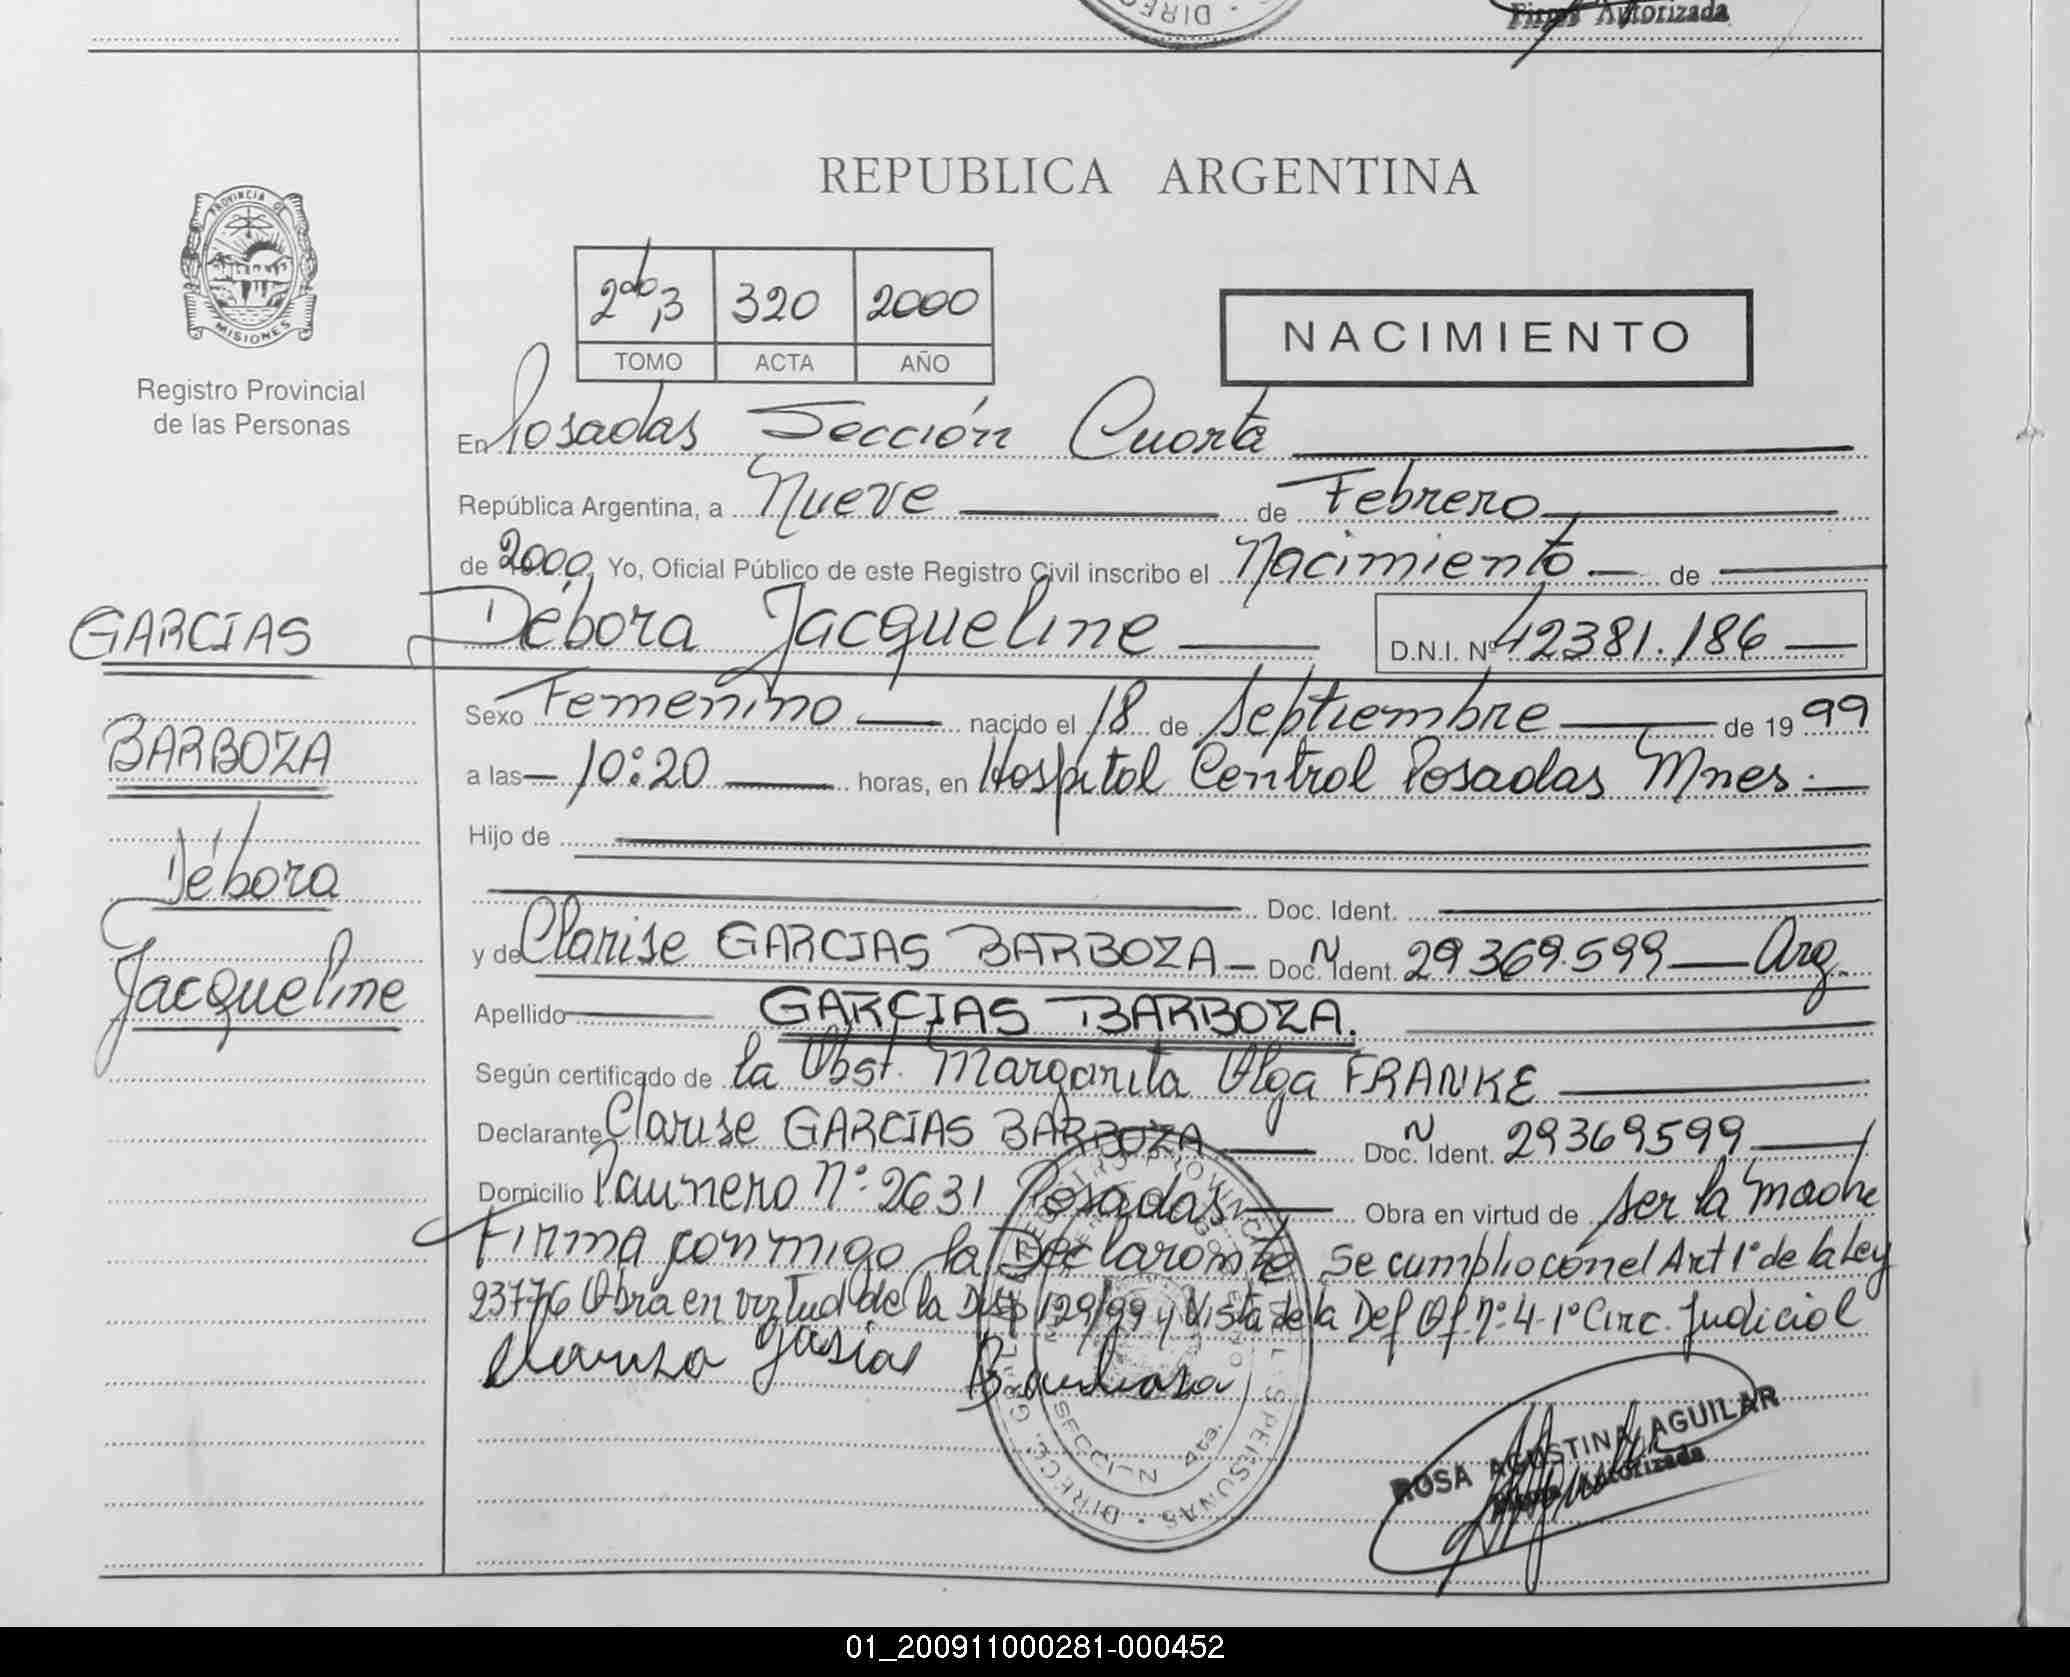 Firma Autorizada
REPUBLICA ARGENTINA
PROVINCIA DE
MISIONES
Registro Provincial
de las Personas
2do,3 320 2000
TOMO ACTA AÑO
NACIMIENTO
En Posadas Sección Cuarta
República Argentina, a Nueve de Febrero
de 2000 Yo, Oficial Público de este Registro Civil inscribo el Nacimiento de
GARCIAS
BARBOZA
Débora
Jacqueline
Débora Jacqueline D.N.I. Nº 42381.186
Sexo Femenino nacido el 18 de Septiembre de 19 99
a las 10:20 horas, en Hospital Central Posadas Mnes.
Hijo de
Doc. Ident.
y de Clarise GARCIAS BARBOZA Doc. N Ident. 29369.599 Arg.
Apellido GARCIAS BARBOZA.
Según certificado de la Obst. Margarita Olga FRANKE
Declarante Clarise GARCIAS BARBOZA Doc. N Ident. 29369599
Domicilio Paunero Nº 2631 Posadas Obra en virtud de ser la madre
Firma conmigo la Declarante Se cumplio con el Art 1º de la Ley
23776 Obra en virtud de la Disp 129/99 y Vista de la Def Of. nº 4-1º Circ. Judicial
SECCION 4ta.
ROSA AGUSTINA AGUILAR
Firma Autorizada
01_200911000281-000452